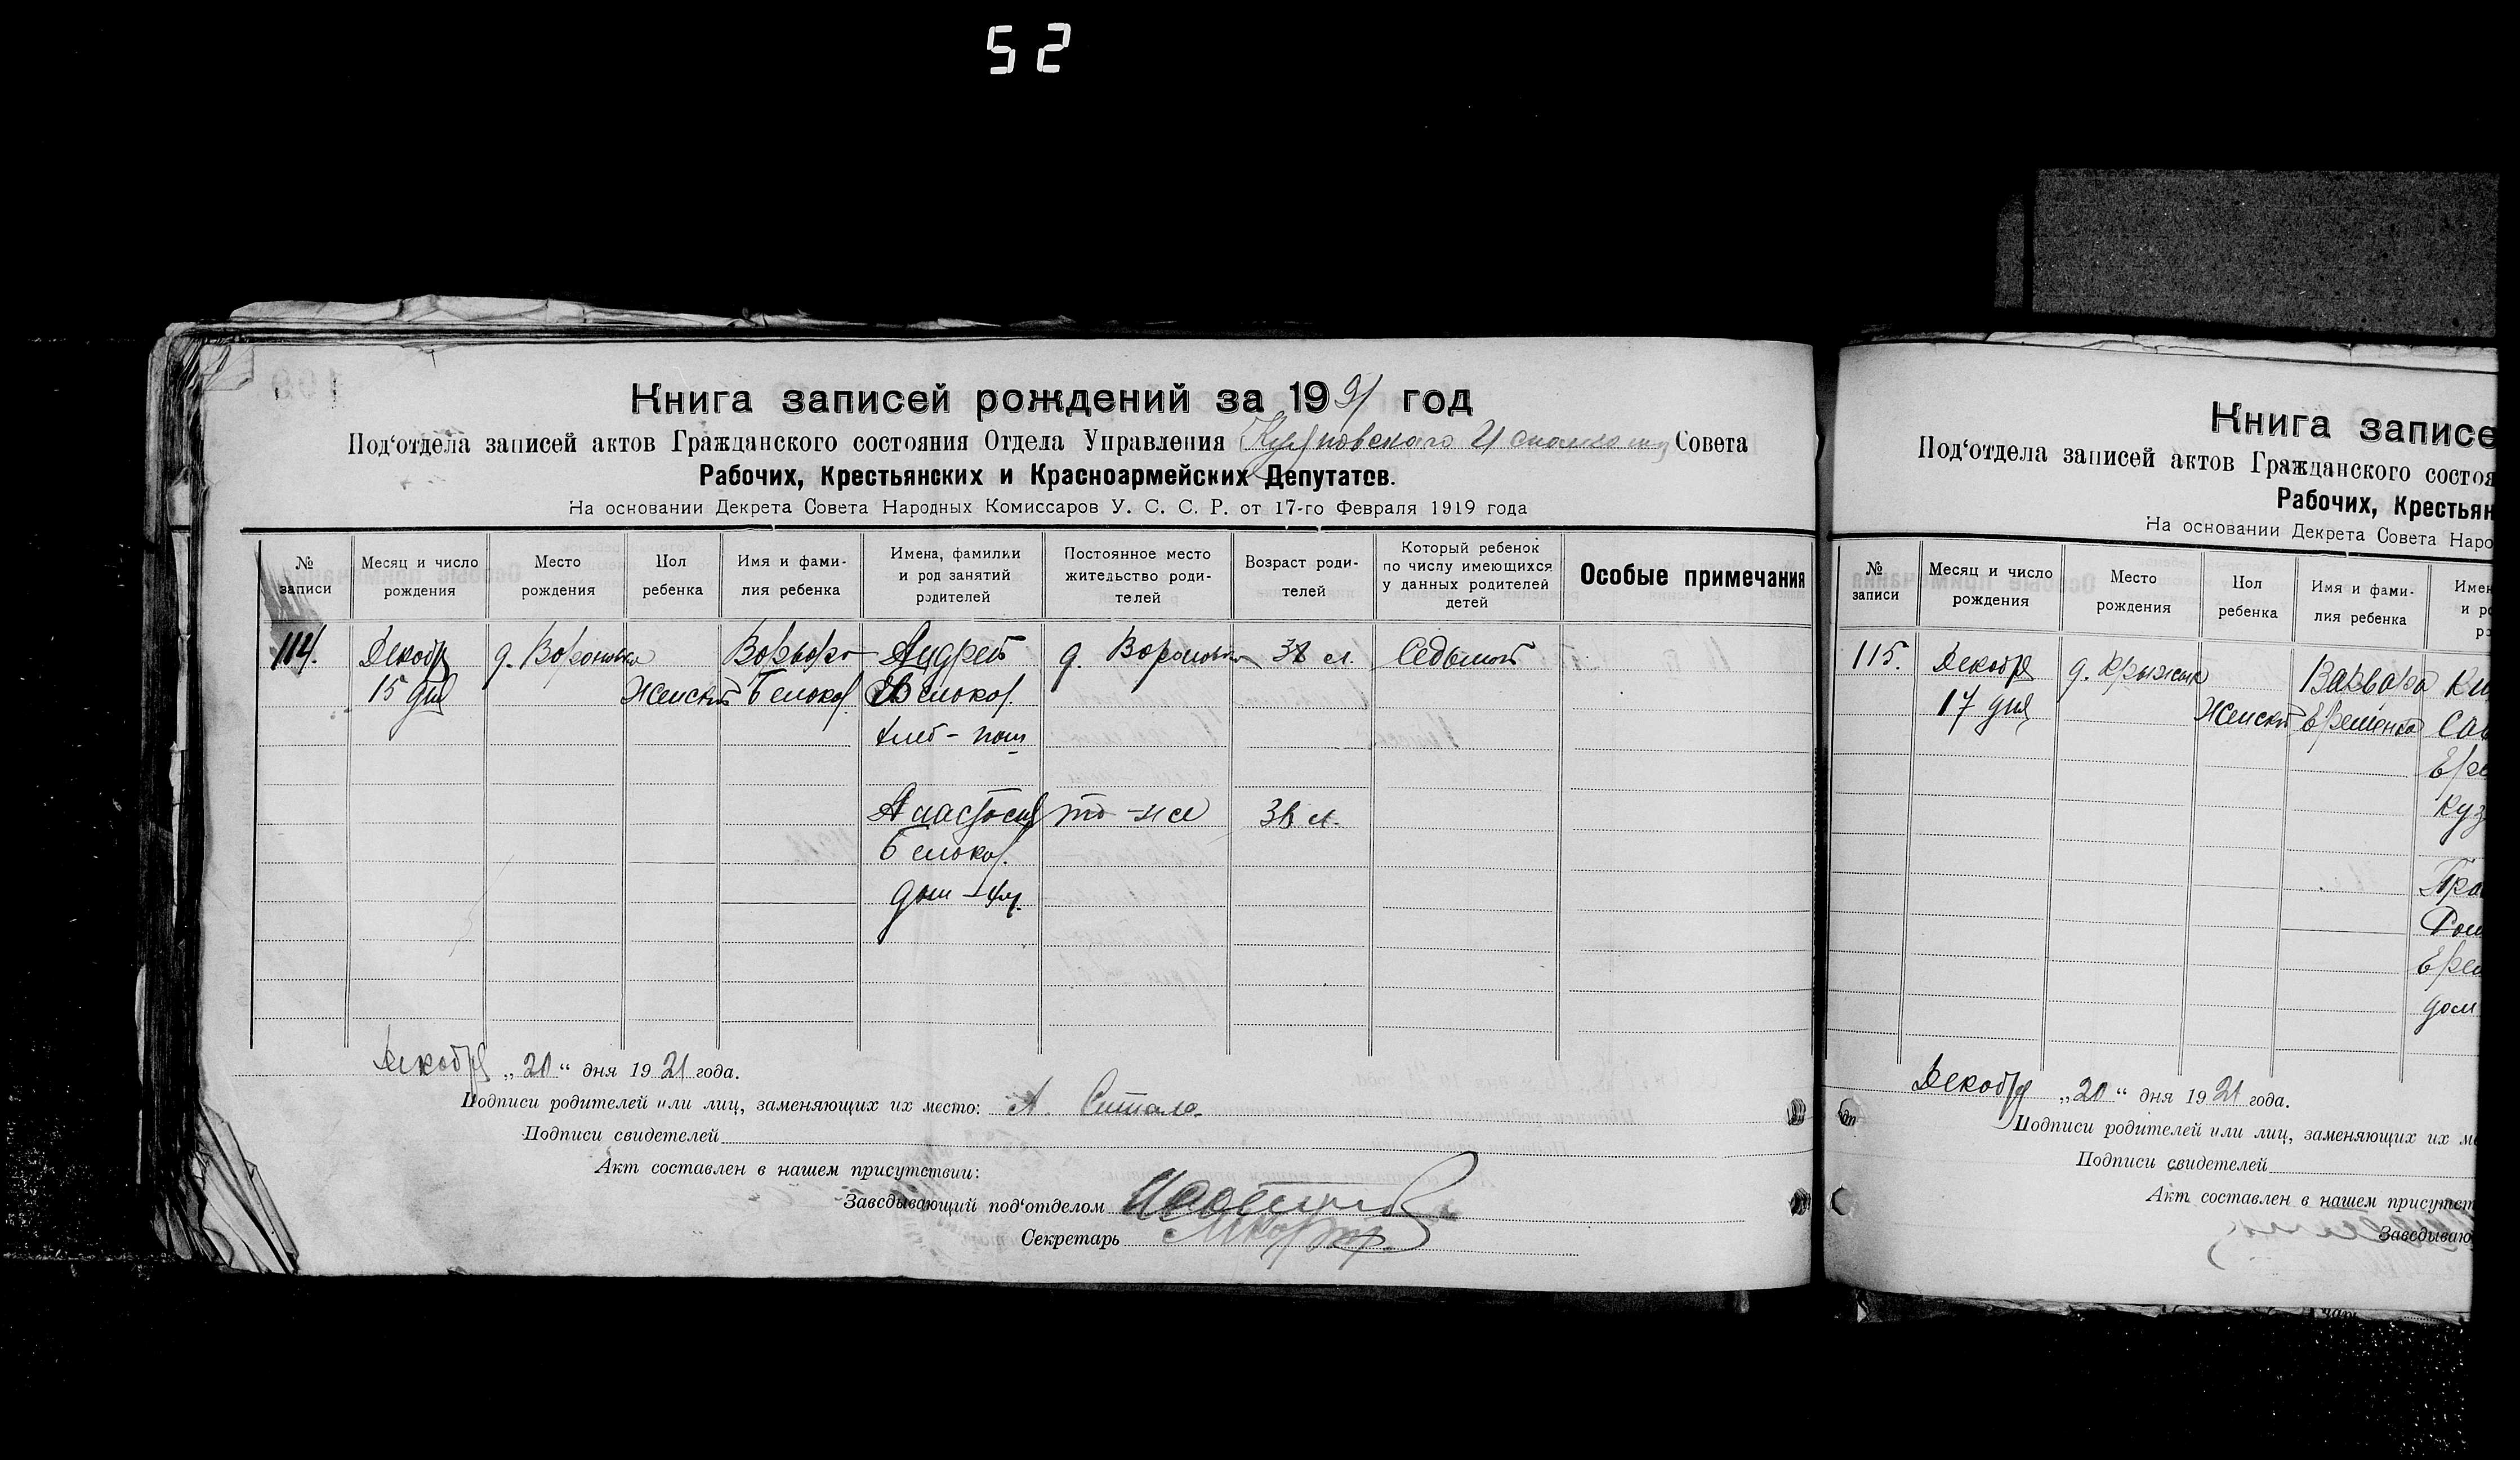 52
Книга записей рождений за 1921 год
Под'отдела записей актов Гражданского состояния Отдела Управления Совета
Рабочих, Крестьянских и Красноармейских Депутатов.
На основании Декрета Совета Народных Комиссаров У. С. С. Р. от 17-го Февраля 1919 года
№ записи
Месяц и число рождения
Место рождения
Пол ребенка
Имя и фами-
лия ребенка
Имена, фамилии
и род занятий
родителей
Постоянное место
жительство роди-
телей
Возраст роди-
телей
Который ребенок
по числу имеющихся
у данных родителей
детей
Особые примечания
114.
Декабр
15 дня
д. Вороновка
Женский
Варвара
Белокор.
Андрей
Белокор.
хлеб-паш
д. Вороновка
38 л.
Седьмой
Анастасия
Белокор.
то-же
36 л.
дом-хоз.
Декабря „20“ дня 1921 года.
Подписи родителей или лиц, заменяющих их место: А.
Подписи свидетелей
Акт составлен в нашем присутствии:
Заведывающий под'отделом
Секретарь
Книга записе
Под'отдела записей актов Гражданского состоя
Рабочих, Крестьян
На основании Декрета Совета Наро
№
записи
Месяц и число
рождения
Место
рождения
Пол
ребенка
Имя и фами-
лия ребенка
Имен
и ро
ро
115.
Декабря
17 дня
Женский
Варвара
Еременко
Ере
Куз
Ере
дом
Декабря „20“ дня 1921 года.
Подписи родителей или лиц, заменяющих их ме
Подписи свидетелей
Акт составлен в нашем присутст
Заведываю